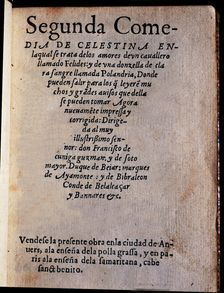 Segunda Come
DIA DE CELESTINA EN
laqual se trata delos amores deun cauallero
llamado Felides: y de una donzella de cla
ra sangre llamada Polandria, Donde
pueden salir para los q̃ leyerẽ mu
chos y grãdes auisos que della
se pueden tomar Agora
nueuamẽte impressa y
corrigida: Dirigi
da al muy
illustrissimo se
nor: don Francisco de
cuniga guzman, y de soto
mayor. Duque de Beiar: marques
de Ayamonte. y de Gibraleon
Conde de Belalcaçar
y Bannares &c.
Vendese la presente obra en la ciudad de An
uers, ala enseña dela polla grassa, y en pa
ris ala enseña dela samaritana, cabe
sanct benito.